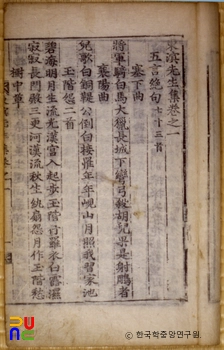 東溟先生集卷之一
五言絕句 七十三首
塞下曲
將軍騎白馬大獵長城下彎弓殺胡兒果是射鵰者
襄陽曲
兒歌白銅鞮公倒白接䍦年年峴山月照我習家池
玉階怨二首
碧海明月生流光漢宮入起步玉階行羅衣白露濕
寂寂長門殿三更河漢流秋生紈扇怨月作玉階愁
樹中草
© 한국학중앙연구원